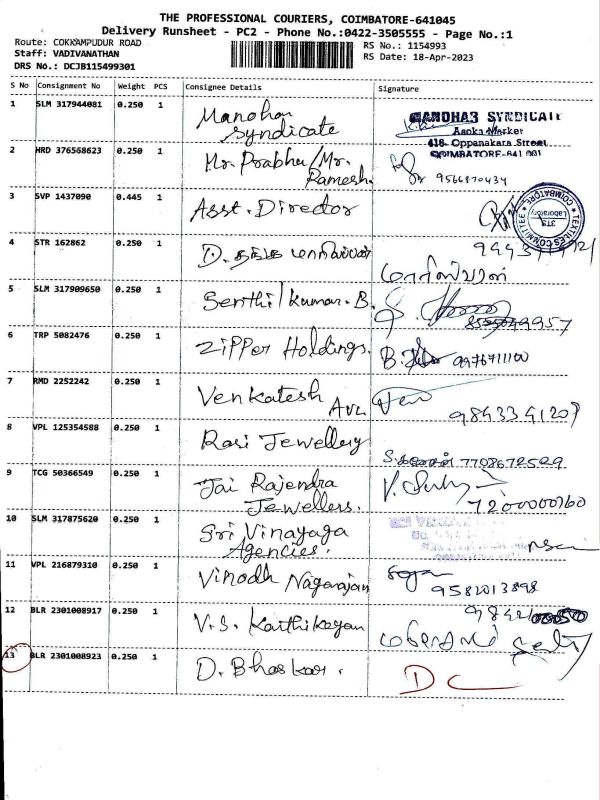 THE PROFESSIONAL COURIERS, COIMBATORE-641045
Delivery Runsheet - PC2 - Phone No.:0422-3505555 - Page No.:1
Route: COKKAMPUDUR ROAD
RS No.: 1154993
Staff: VADIVANATHAN
RS Date: 18-Apr-2023
DRS No.: DCJB115499301
S No Consignment No Weight PCS Consignee Details Signature
1 SLM 317944081 0.250 1 Manohar
Syndicate
MANOHAR SYNDICATE
Market
418- Oppanakara Street
COIMBATORE-641 001
2 HRD 376568623 0.250 1 Mr. Prabhu/Mr.
Ramesh.
9566870434
3 SVP 1437090 0.445 1 Asst. Director
TEXTILES COMMITTEE
Laboratory
COIMBATORE
4 STR 162862 0.250 1 D. தங்க மாரியப்பன்
5 SLM 317909650 0.250 1 Senthil kumar. B.
6 TRP 5082476 0.250 1 Zipper Holdings. 9976711100
7 RMD 2252242 0.250 1 Venkatesh
Avl
9843341209
8 VPL 125354588 0.250 1 Rasi Jewellery
7708672529
9 TCG 50366549 0.250 1 Jai Rajendra
Jewellers.
7200000160
10 SLM 317875620 0.250 1 Sri Vinayaga
Agencies.
11 VPL 216879310 0.250 1 Vinodh Nagarajan
9582013898
12 BLR 2301008917 0.250 1 V.S. Karthikeyan
13 BLR 2301008923 0.250 1 D. Bhaskar. DC